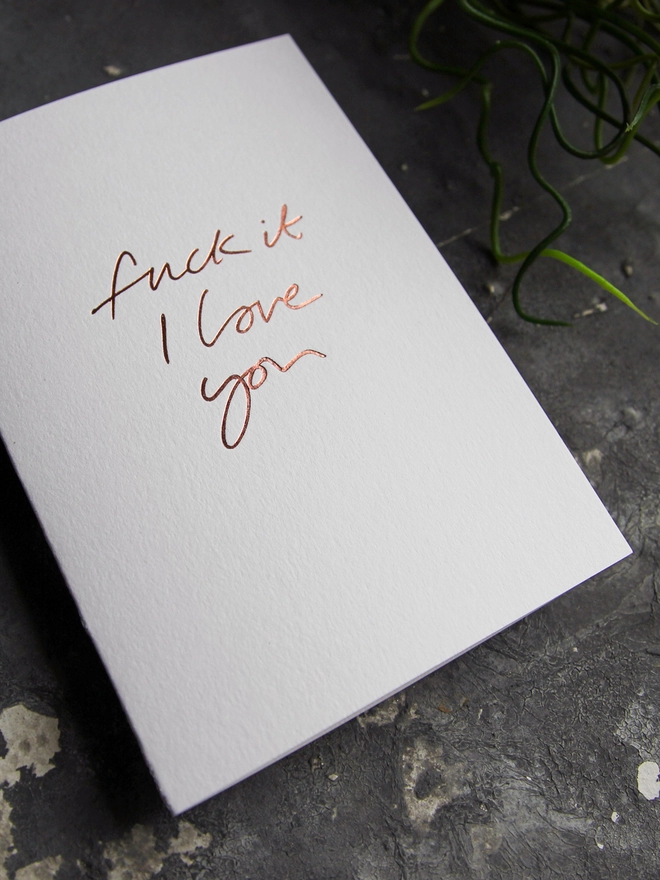 fuck it
I love
you